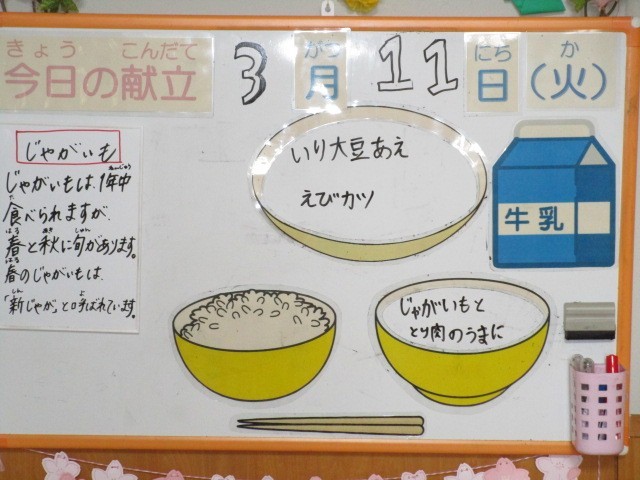 きょう こんだて
今日の献立
3月11日(火)
がつ にち か
じゃがいも
じゃがいもは、1年中
ねんじゅう
食べられますが、
た
春と秋に旬があります。
はる あき しゅん
春のじゃがいもは、
はる
「新じゃが」と呼ばれています。
しん よ
いり大豆あえ
えびカツ
牛乳
じゃがいもと
とり肉のうまに